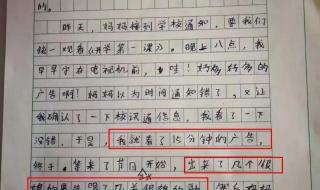 的。
昨天，妈妈接到学校通知，要我们
统一观看《开学第一课》。晚上八点，我
早早守在电视机前，哇！好多好多的
广告啊！妈妈以为时间通知错了，又让
我确认了一下校讯通信息，我看了一下
没错，于是，我就看了15分钟的广告，
终于，等来了节目开始，出来了几个很